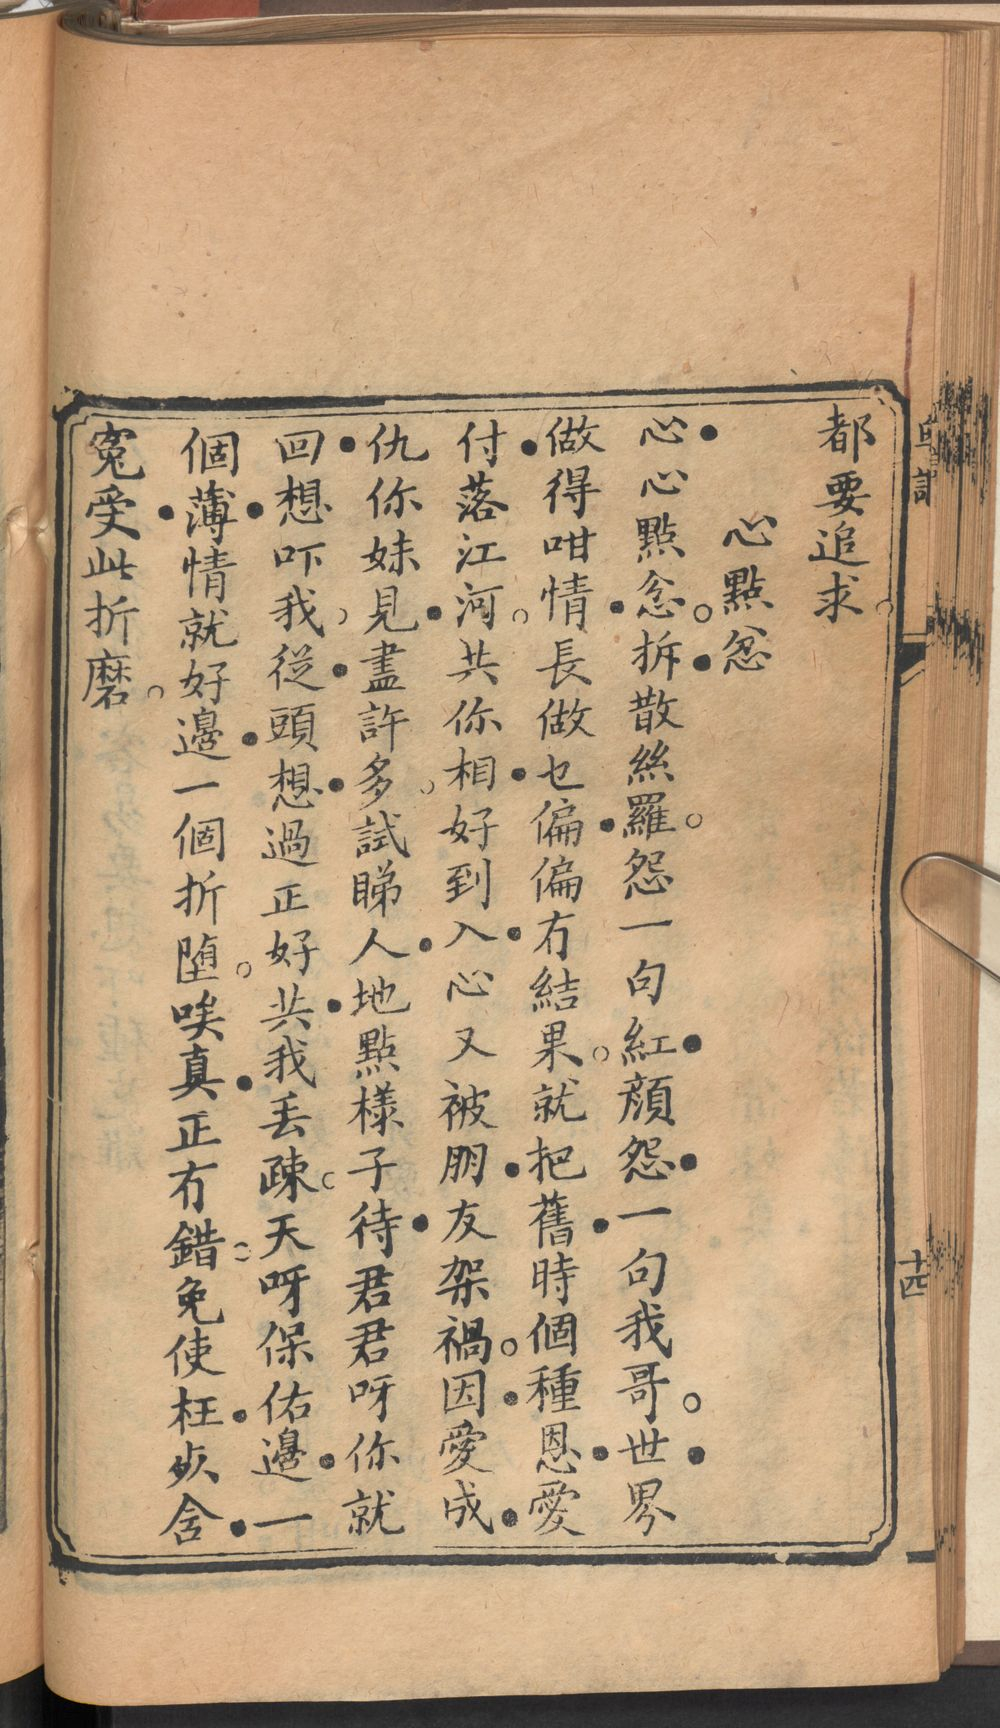 都要追求。
心點忿
心心點忿。拆散絲羅。怨一句紅顏怨一句我哥。世界
做得咁情長做乜偏偏冇結果。就把舊時個種恩愛
付落江河。共你相好到入心又被朋友架禍。因愛成
仇你妹見盡許多。試睇人地點樣子待君君呀你就
回想吓我。從頭想過正好共我丟疎。天呀保佑邊一
個薄情就好邊一個折堕。唉真正冇錯。免使枉死含
寃受此折磨。
十四